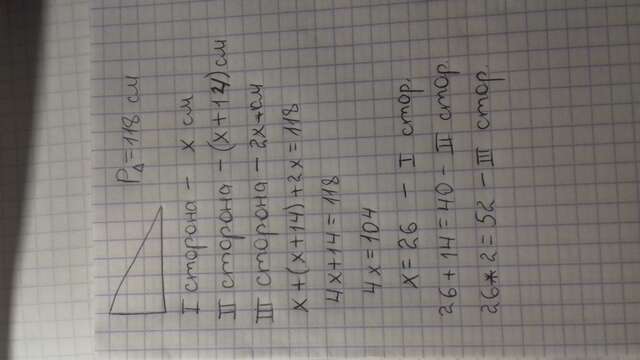 P△ = 118 см
I сторона - x см
II сторона - (x+14) см
III сторона - 2x см
x+(x+14)+2x=118
4x+14=118
4x=104
x=26 - I стор.
26+14=40 - II стор.
26*2=52 - III стор.